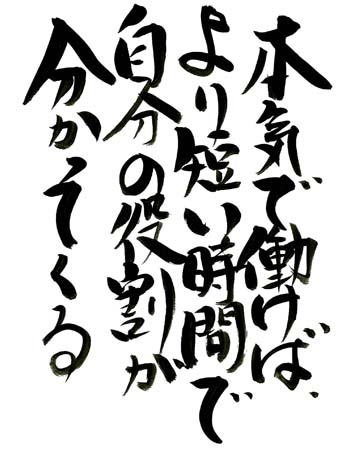 本気で働けば、
より短い時間で
自分の役割が
分かってくる